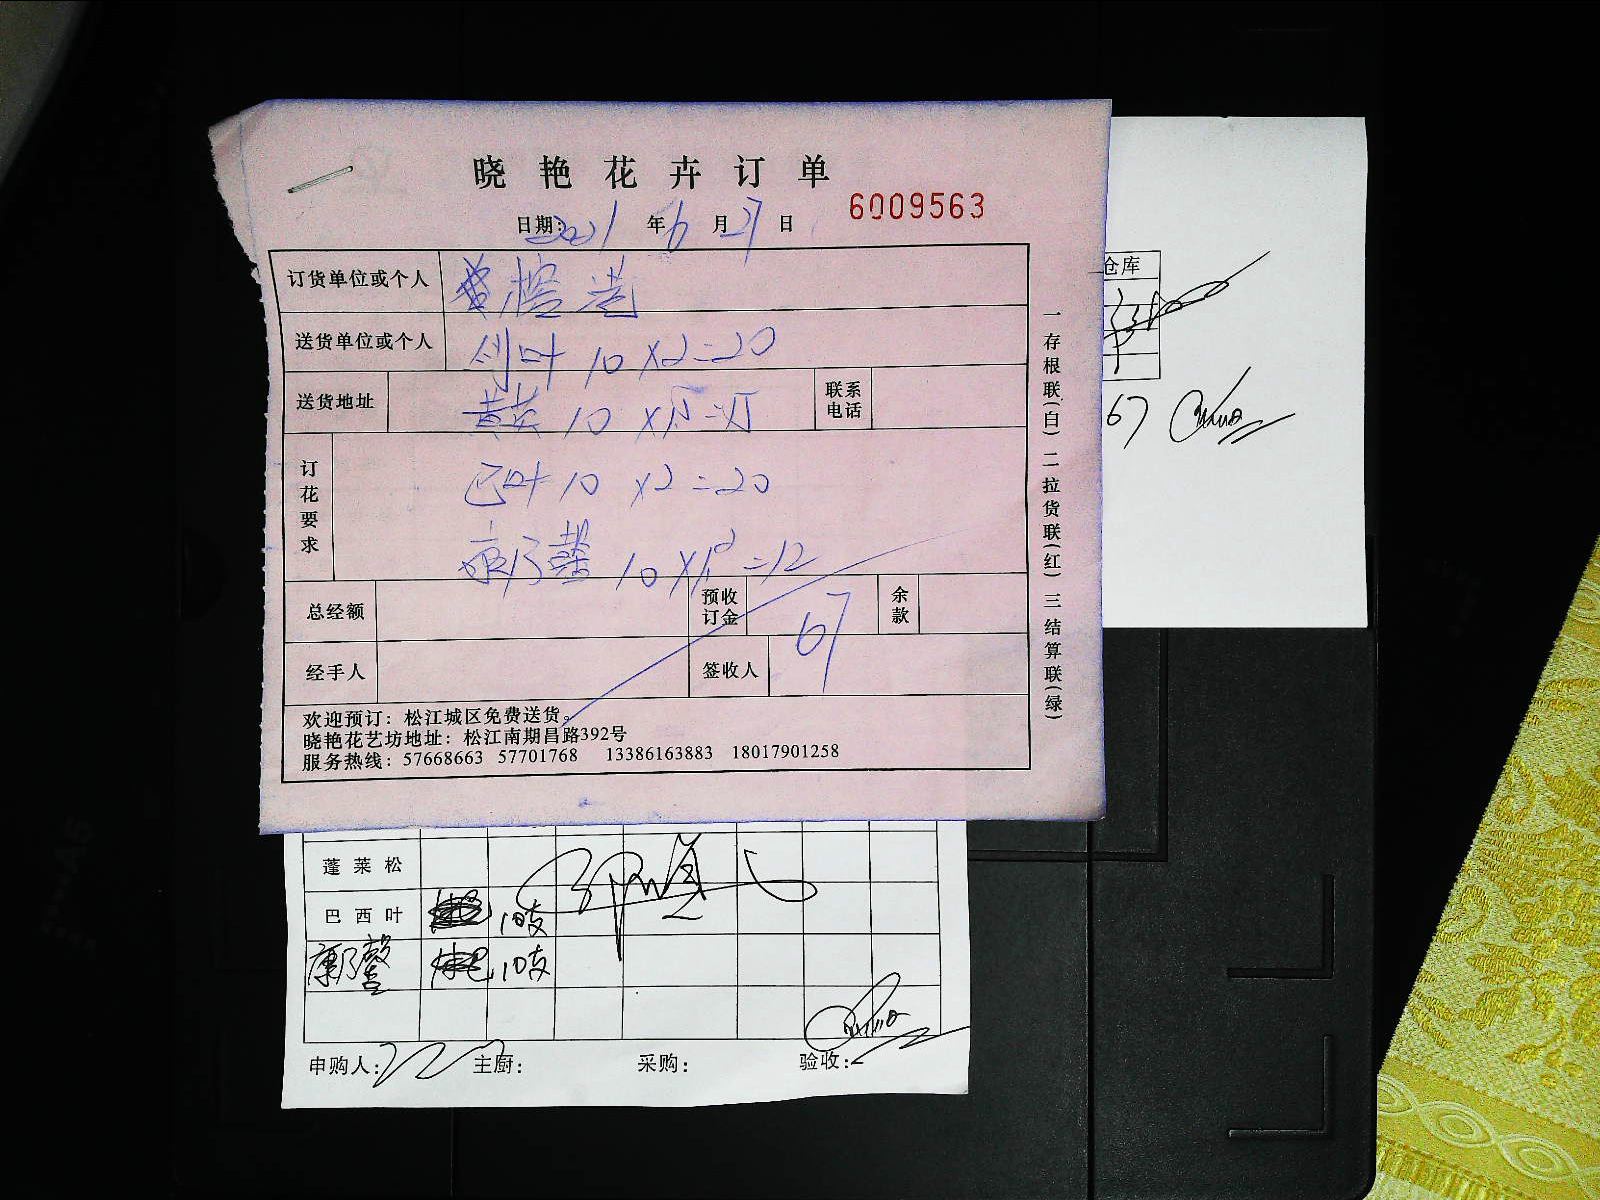 晓艳花卉订单
6009563
日期: 2021 年 6 月 27 日
订货单位或个人
送货单位或个人 剑叶 10 x2=20
送货地址 黄英 10 x1.5=15 联系电话
订花要求
巴叶 10 x2=20
康乃馨 10 x1.2=12
总经额 预收订金 67 余款
经手人 签收人
欢迎预订：松江城区免费送货。
晓艳花艺坊地址：松江南期昌路392号
服务热线：57668663 57701768 13386163883 18017901258
一存根联(白) 二拉货联(红) 三结算联(绿)
仓库
67
蓬莱松
巴西叶 10支
康乃馨 10支
申购人: 主厨: 采购: 验收: